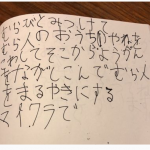 むらびとみつけて
むら人のおうちやねを
こわしてそこからようがん
をながしこんでむら人
をまるやきにする
マイクラで